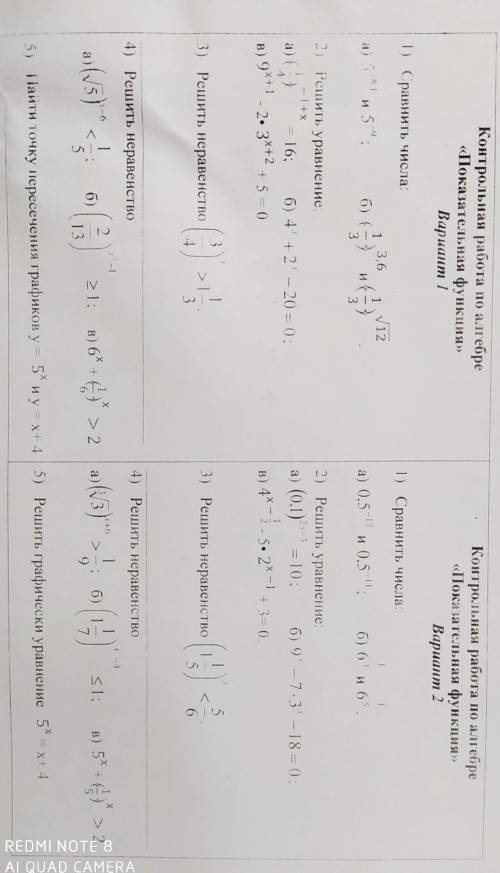 Контрольная работа по алгебре
«Показательная функция»
Вариант 1
1) Сравнить числа:
а) и 5⁻⁹; б) (1/3)^3,6 и (1/3)^√12.
2) Решить уравнение:
а) (1/4)^(-1+x) = 16; б) 4ˣ + 2ˣ – 20 = 0;
в) 9^(x+1) - 2• 3^(x+2) + 5 = 0
3) Решить неравенство (3/4)ˣ > 1 1/3.
4) Решить неравенство
а) (√5)^(x-6) < 1/5; б) (2/13)^(x²-1) ≥ 1; в) 6ˣ + (1/6)ˣ > 2
5) Найти точку пересечения графиков y = 5ˣ и y = x+ 4
Контрольная работа по алгебре
«Показательная функция»
Вариант 2
1) Сравнить числа:
а) 0,5⁻¹² и 0,5⁻¹¹; б) и 6^(1/5).
2) Решить уравнение:
а) (0,1)^(2x-3) = 10; б) 9ˣ – 7·3ˣ – 18 = 0;
в) 4^(x-1/2) - 5• 2^(x-1) + 3 = 0.
3) Решить неравенство (1 1/5)ˣ < 5/6.
4) Решить неравенство
а) (∛3)^(x+6) > 1/9; б) (1 1/7)^(x²-4) ≤ 1; в) 5ˣ + (1/5)ˣ > 2
5) Решить графически уравнение 5ˣ = x+ 4
REDMI NOTE 8
AI QUAD CAMERA